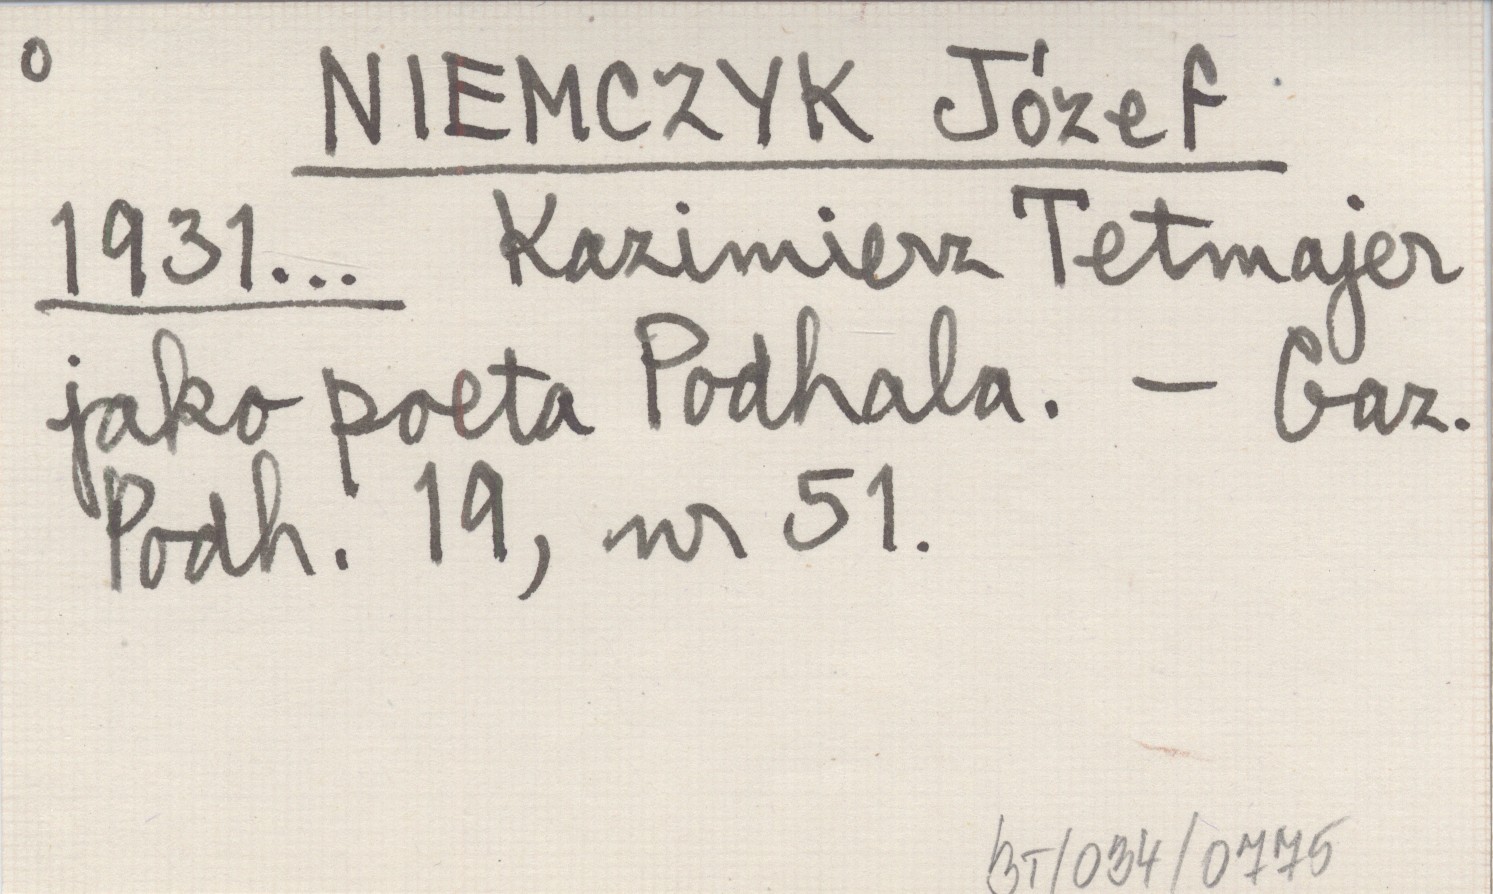 o NIEMCZYK Józef
1931... Kazimierz Tetmajer
jako poeta Podhala. – Gaz.
Podh. 19, nr 51.
BT/034/0775